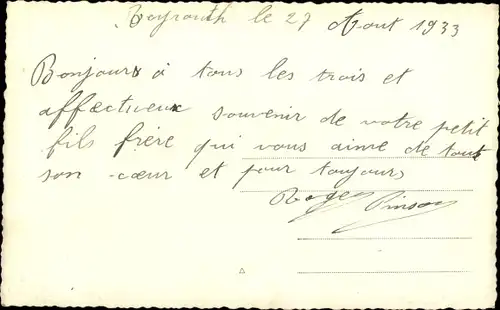 Beyrouth le 27 Aout 1933
Bonjours à tous les trois et
affectueux souvenir de votre petit
fils frère qui vous aime de tout
son cœur et pour toujours
Roger Pinson